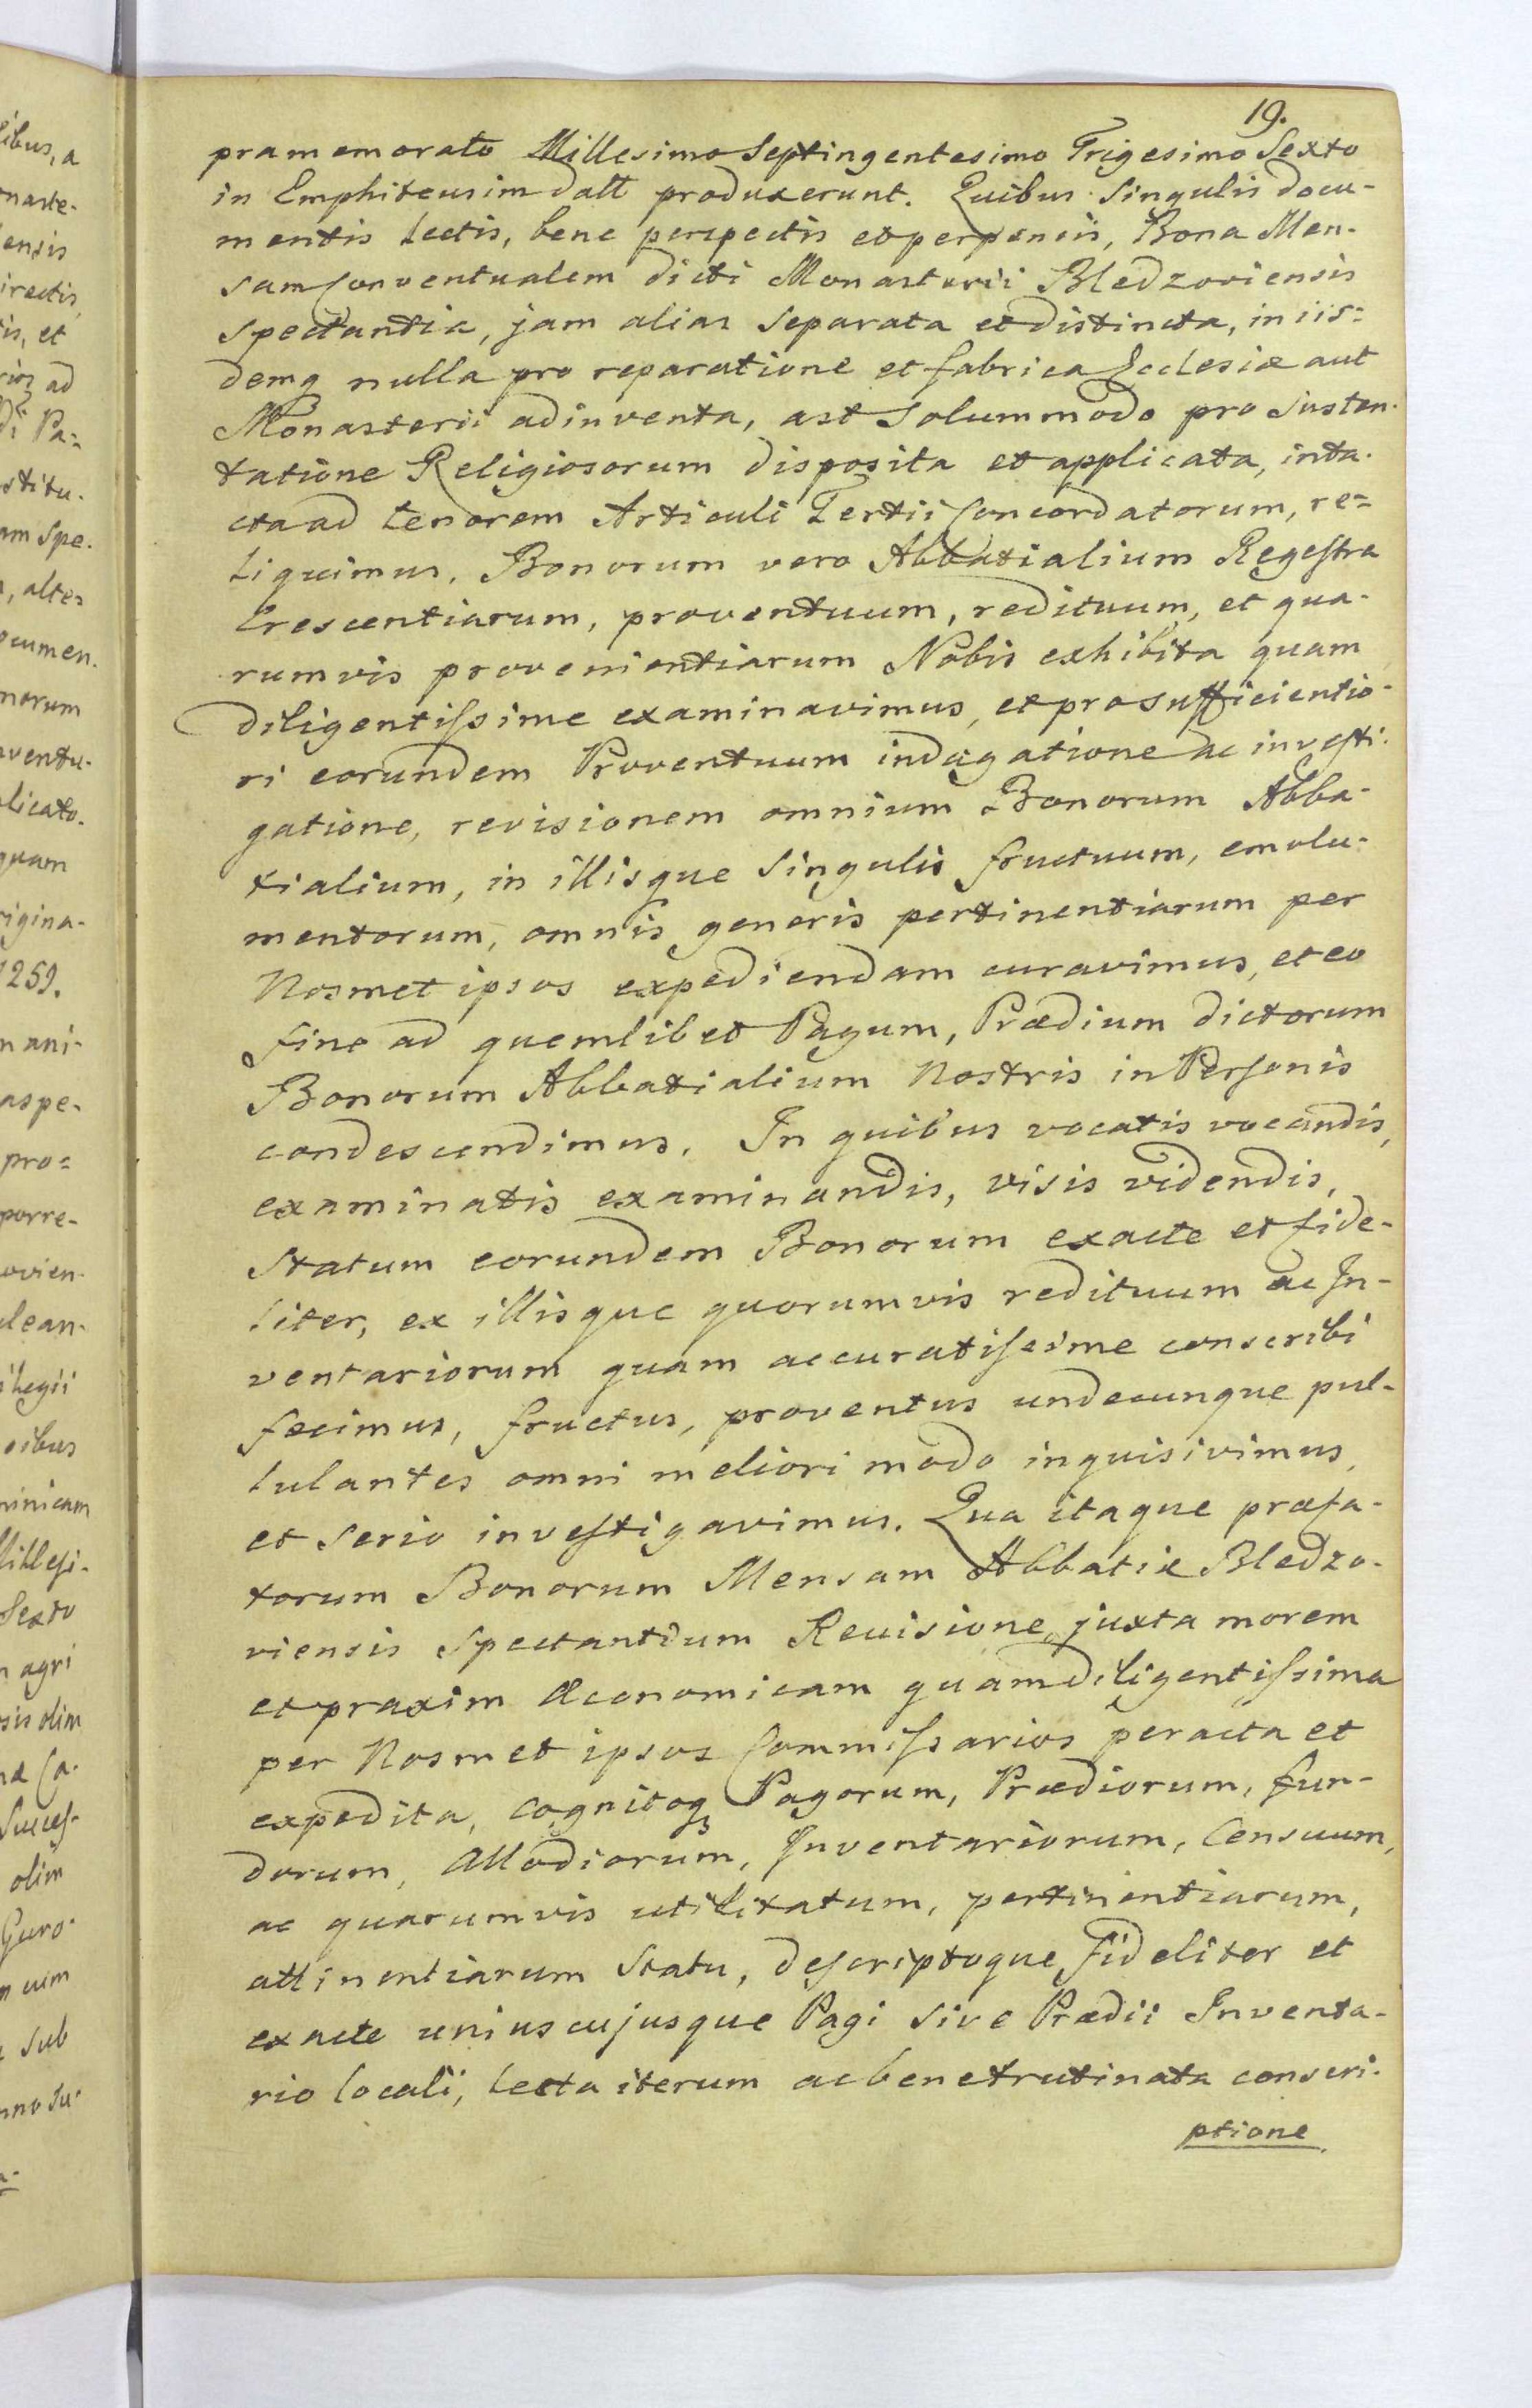 19.
pramemorato Millesimo Septingentesimo Trigesimo Sexto
in Emphiteusim datt produxerunt. Quibus Singulis docu-
mentis Lectis, bene perspectis et perpensis, Bona Men-
sam Conventualem dicti Monasterii Bledzoviensis
Spectantia, jam alias Separata et distincta, in iis=
demq nulla pro reparatione et fabrica Ecclesiæ aut
Monasterii adinventa, ast Solummodo pro Susten-
tatione Religiosorum disposita et applicata, inta-
cta ad tenorem Articuli Tertii Concordatorum, re=
liquimus. Bonorum vero Abbatialium Regestra
Crescentiarum, proventuum, redituum, et qua-
rumvis provenientiarum Nobis exhibita quam
diligentissime examinavimus, et pro sufficientio-
ri eorundem Proventuum indagatione ac investi-
gatione, revisionem omnium Bonorum Abba-
tialium, in illisque Singulis fructuum, emolu-
mentorum, omnis generis pertinentiarum per
Nosmet ipsos expediendam curavimus, et eo
fine ad quemlibet Pagum, Prædium dictorum
Bonorum Abbatialium Nostris in Personis
condescendimus. In quibus vocatis vocandis,
examinatis examinandis, visis videndis,
Statum eorundem Bonorum exacte et fide-
liter, ex illisque quorumvis redituum ac In-
ventariorum quam accuratissime conscribi
fecimus, fructus, proventus undecunque pul-
lulantes omni meliori modo inquisivimus,
et Serio investigavimus. Qua itaque præfa-
torum Bonorum Mensam Abbatiæ Bledzo-
viensis Spectantium Revisione, juxta morem
et praxim Œconomicam quam diligentissima
per Nosmet ipsos Commissarios peracta et
expedita, cognitoq Pagorum, Prædiorum, fun-
dorum, Allodiorum, Inventariorum, Censuum,
ac quarumvis utilitatum, pertinentiarum,
attinentiarum Statu, descriptoque fideliter et
exacte uniuscujusque Pagi Sive Prædii Inventa-
rio locali, Lecta iterum ac bene trutinata conscri-
ptione